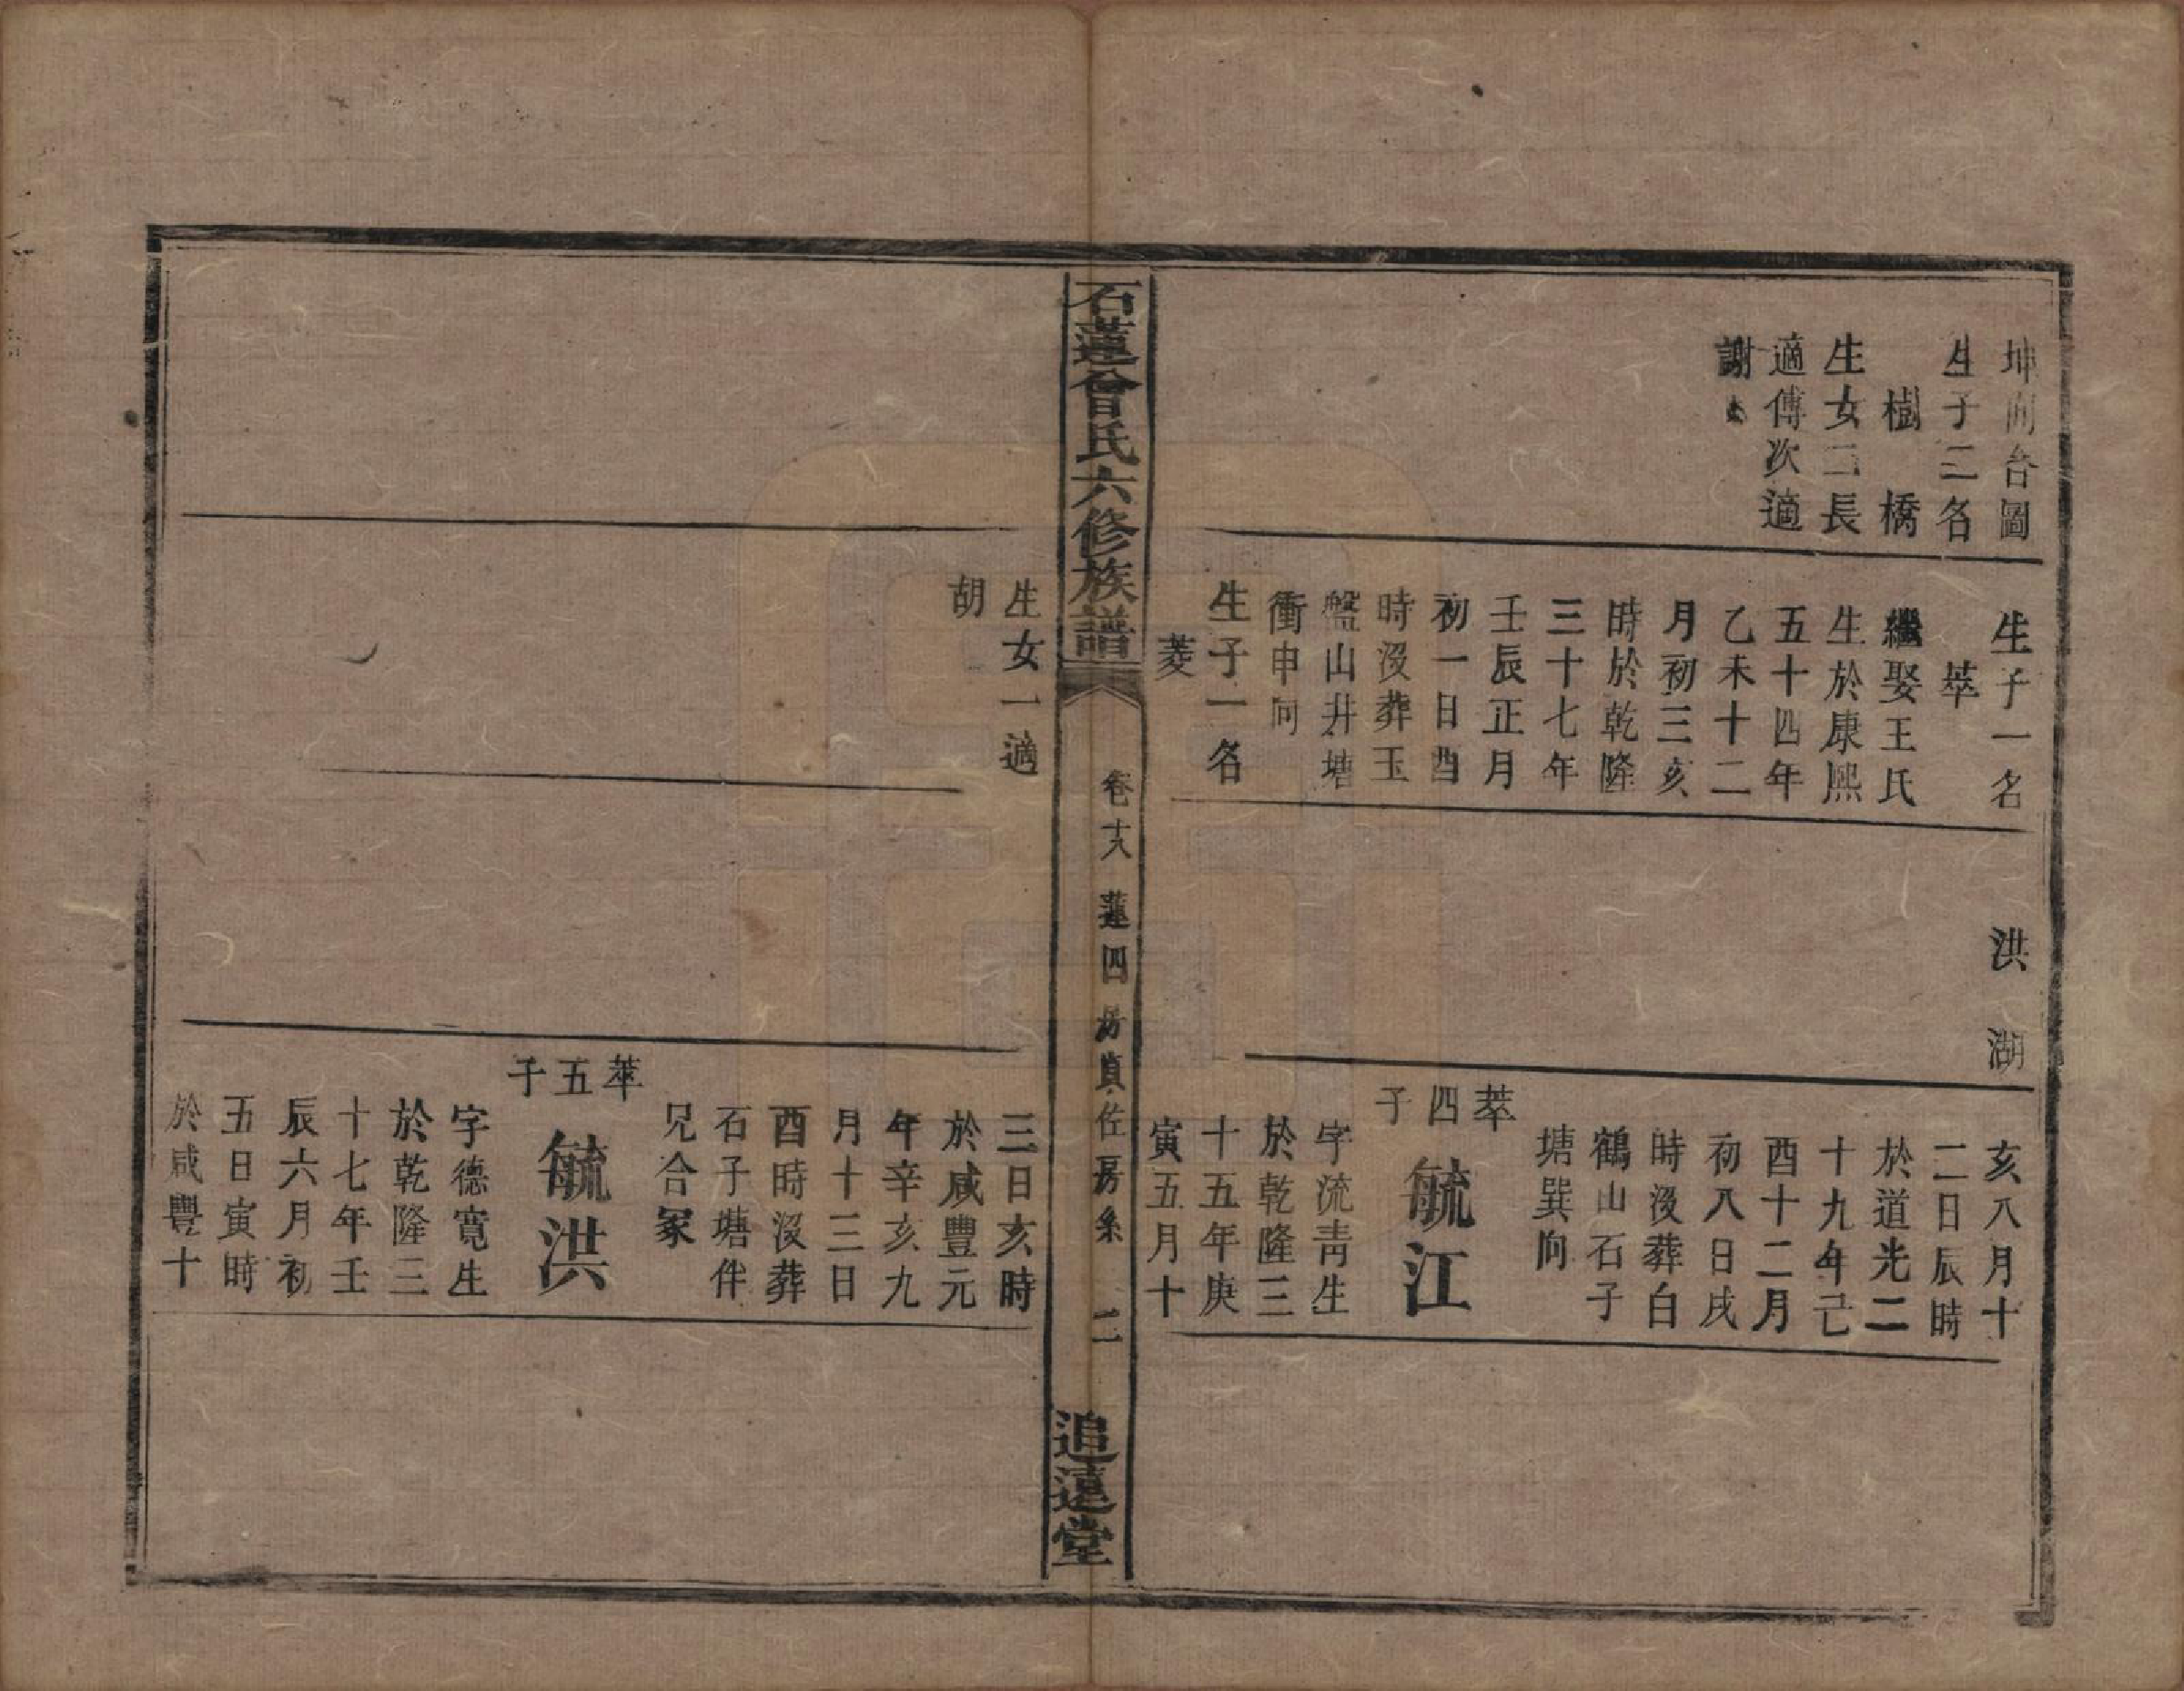 坤向合圖
生子二名
樹 橋
生女二長
適傅次適
謝
生子一名
萃
繼娶王氏
生於康熙
五十四年
乙未十二
月初三亥
時於乾隆
三十七年
壬辰正月
初一日酉
時沒葬玉
盤山井塘
衝申向
生子一名
菱
洪 湖
亥八月十
二日辰時
於道光二
十九年己
酉十二月
初八日戌
時沒葬白
鶴山石子
塘巽向
萃四子
毓江
字流靑生
於乾隆三
十五年庚
寅五月十
石蓮曾氏六修族譜
卷十八
蓮四房貞佐房系
二
追遠堂
生女一適
胡
三日亥時
於咸豐元
年辛亥九
月十三日
酉時沒葬
石子塘伴
兄合冢
萃五子
毓洪
字德寬生
於乾隆三
十七年壬
辰六月初
五日寅時
於咸豐十